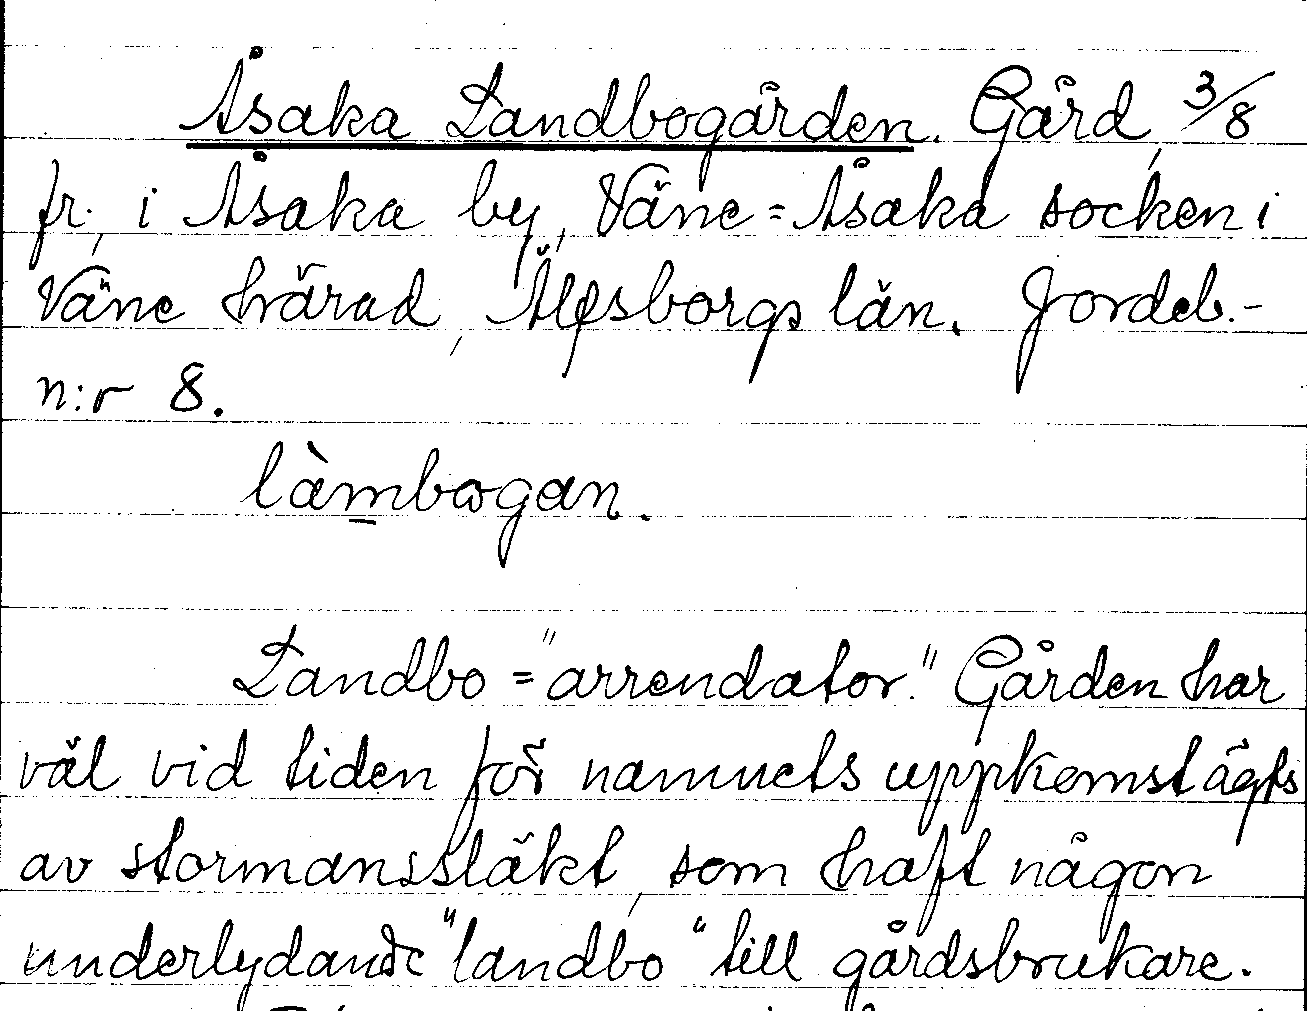 Åsaka Landbogården. Gård, 3/8
fr., i Åsaka by, Väne=Åsaka socken i
Väne härad, Älfsborgs län. Jordeb.-
n:r 8.
làmbogan.
Landbo = "arrendator." Gården har
väl vid tiden för namnets uppkomst ägts
av stormanssläkt, som haft någon
underlydande "landbo" till gårdsbrukare.